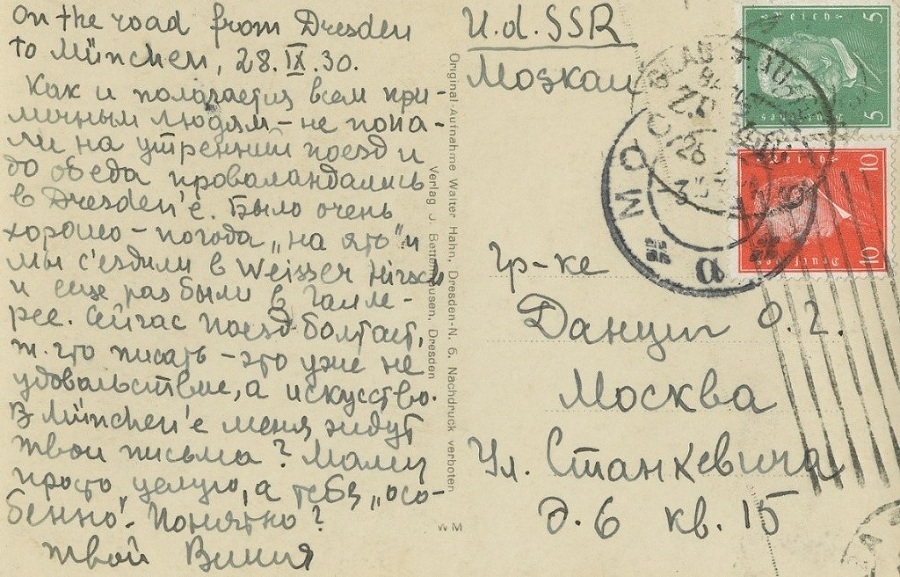 On the road from Dresden
to München, 28.IX.30.
Как и полагается всем при-
личным людям – не попа-
ли на утренний поезд и
до обеда проваландались
в Dresden'е. Было очень
хорошо – погода „на ять" и
мы с'ездили в Weisser Hirsch
и еще раз были в Галле-
рее. Сейчас поезд болтает,
т. что писать – это уже не
удовольствие, а искусство.
В München'е меня ждут
твои письма? Маму
просто целую, а тебя „осо-
бенно". Понятно?
твой Виния
Original-Aufnahme Walter Hahn, Dresden-N. 6. Nachdruck verboten
Verlag J. Bettenhausen, Dresden
WM
U.d.SSR
Moskau
Гр-ке
Данциг О.Г.
Москва
Ул. Станкевича
д. 6 кв. 15
5
5
10
10
Deutsches
Reich
МОС
26
а